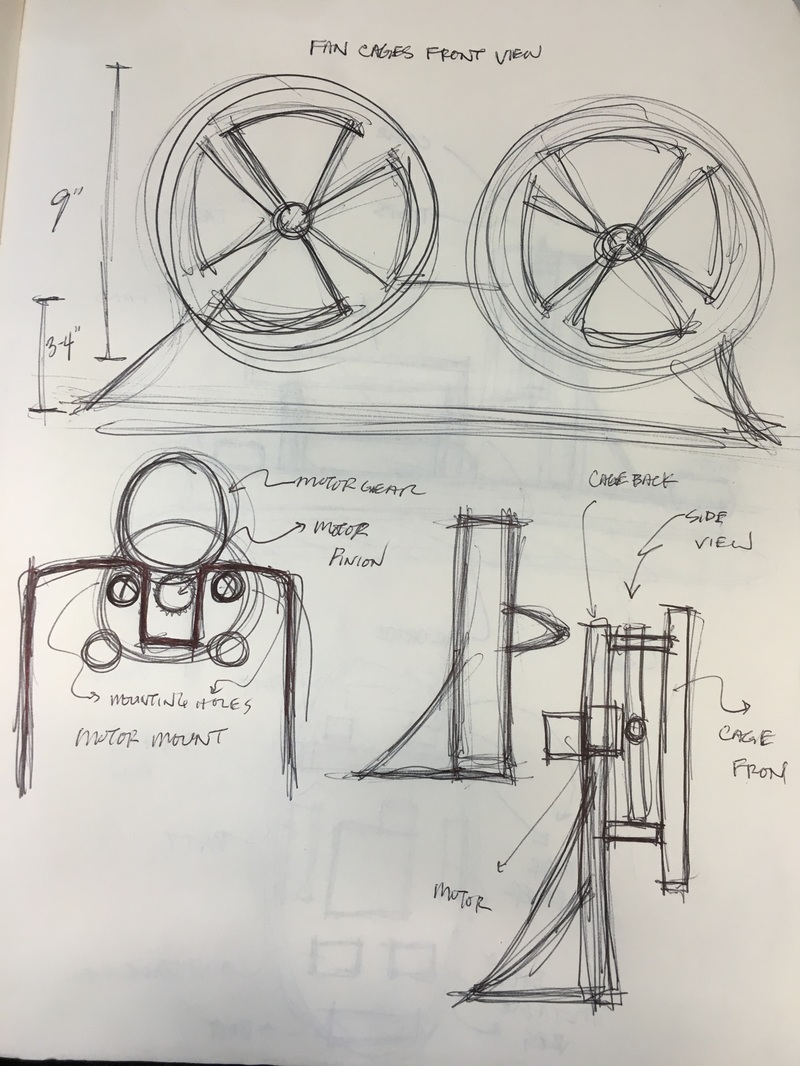 FAN CAGES FRONT VIEW
9"
3-4"
MOTOR GEAR
MOTOR
PINION
MOUNTING HOLES
MOTOR MOUNT
CAGE BACK
SIDE
VIEW
CAGE
FRON
MOTOR